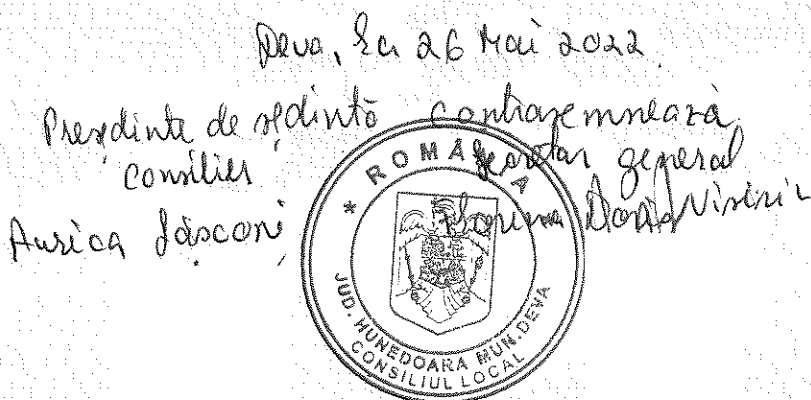 Deva, la 26 Mai 2022
Președinte de ședință
Consilier
Aurica
Contrasemnează
Secretar general
ROMÂNIA
JUD. HUNEDOARA MUN. DEVA
CONSILIUL LOCAL